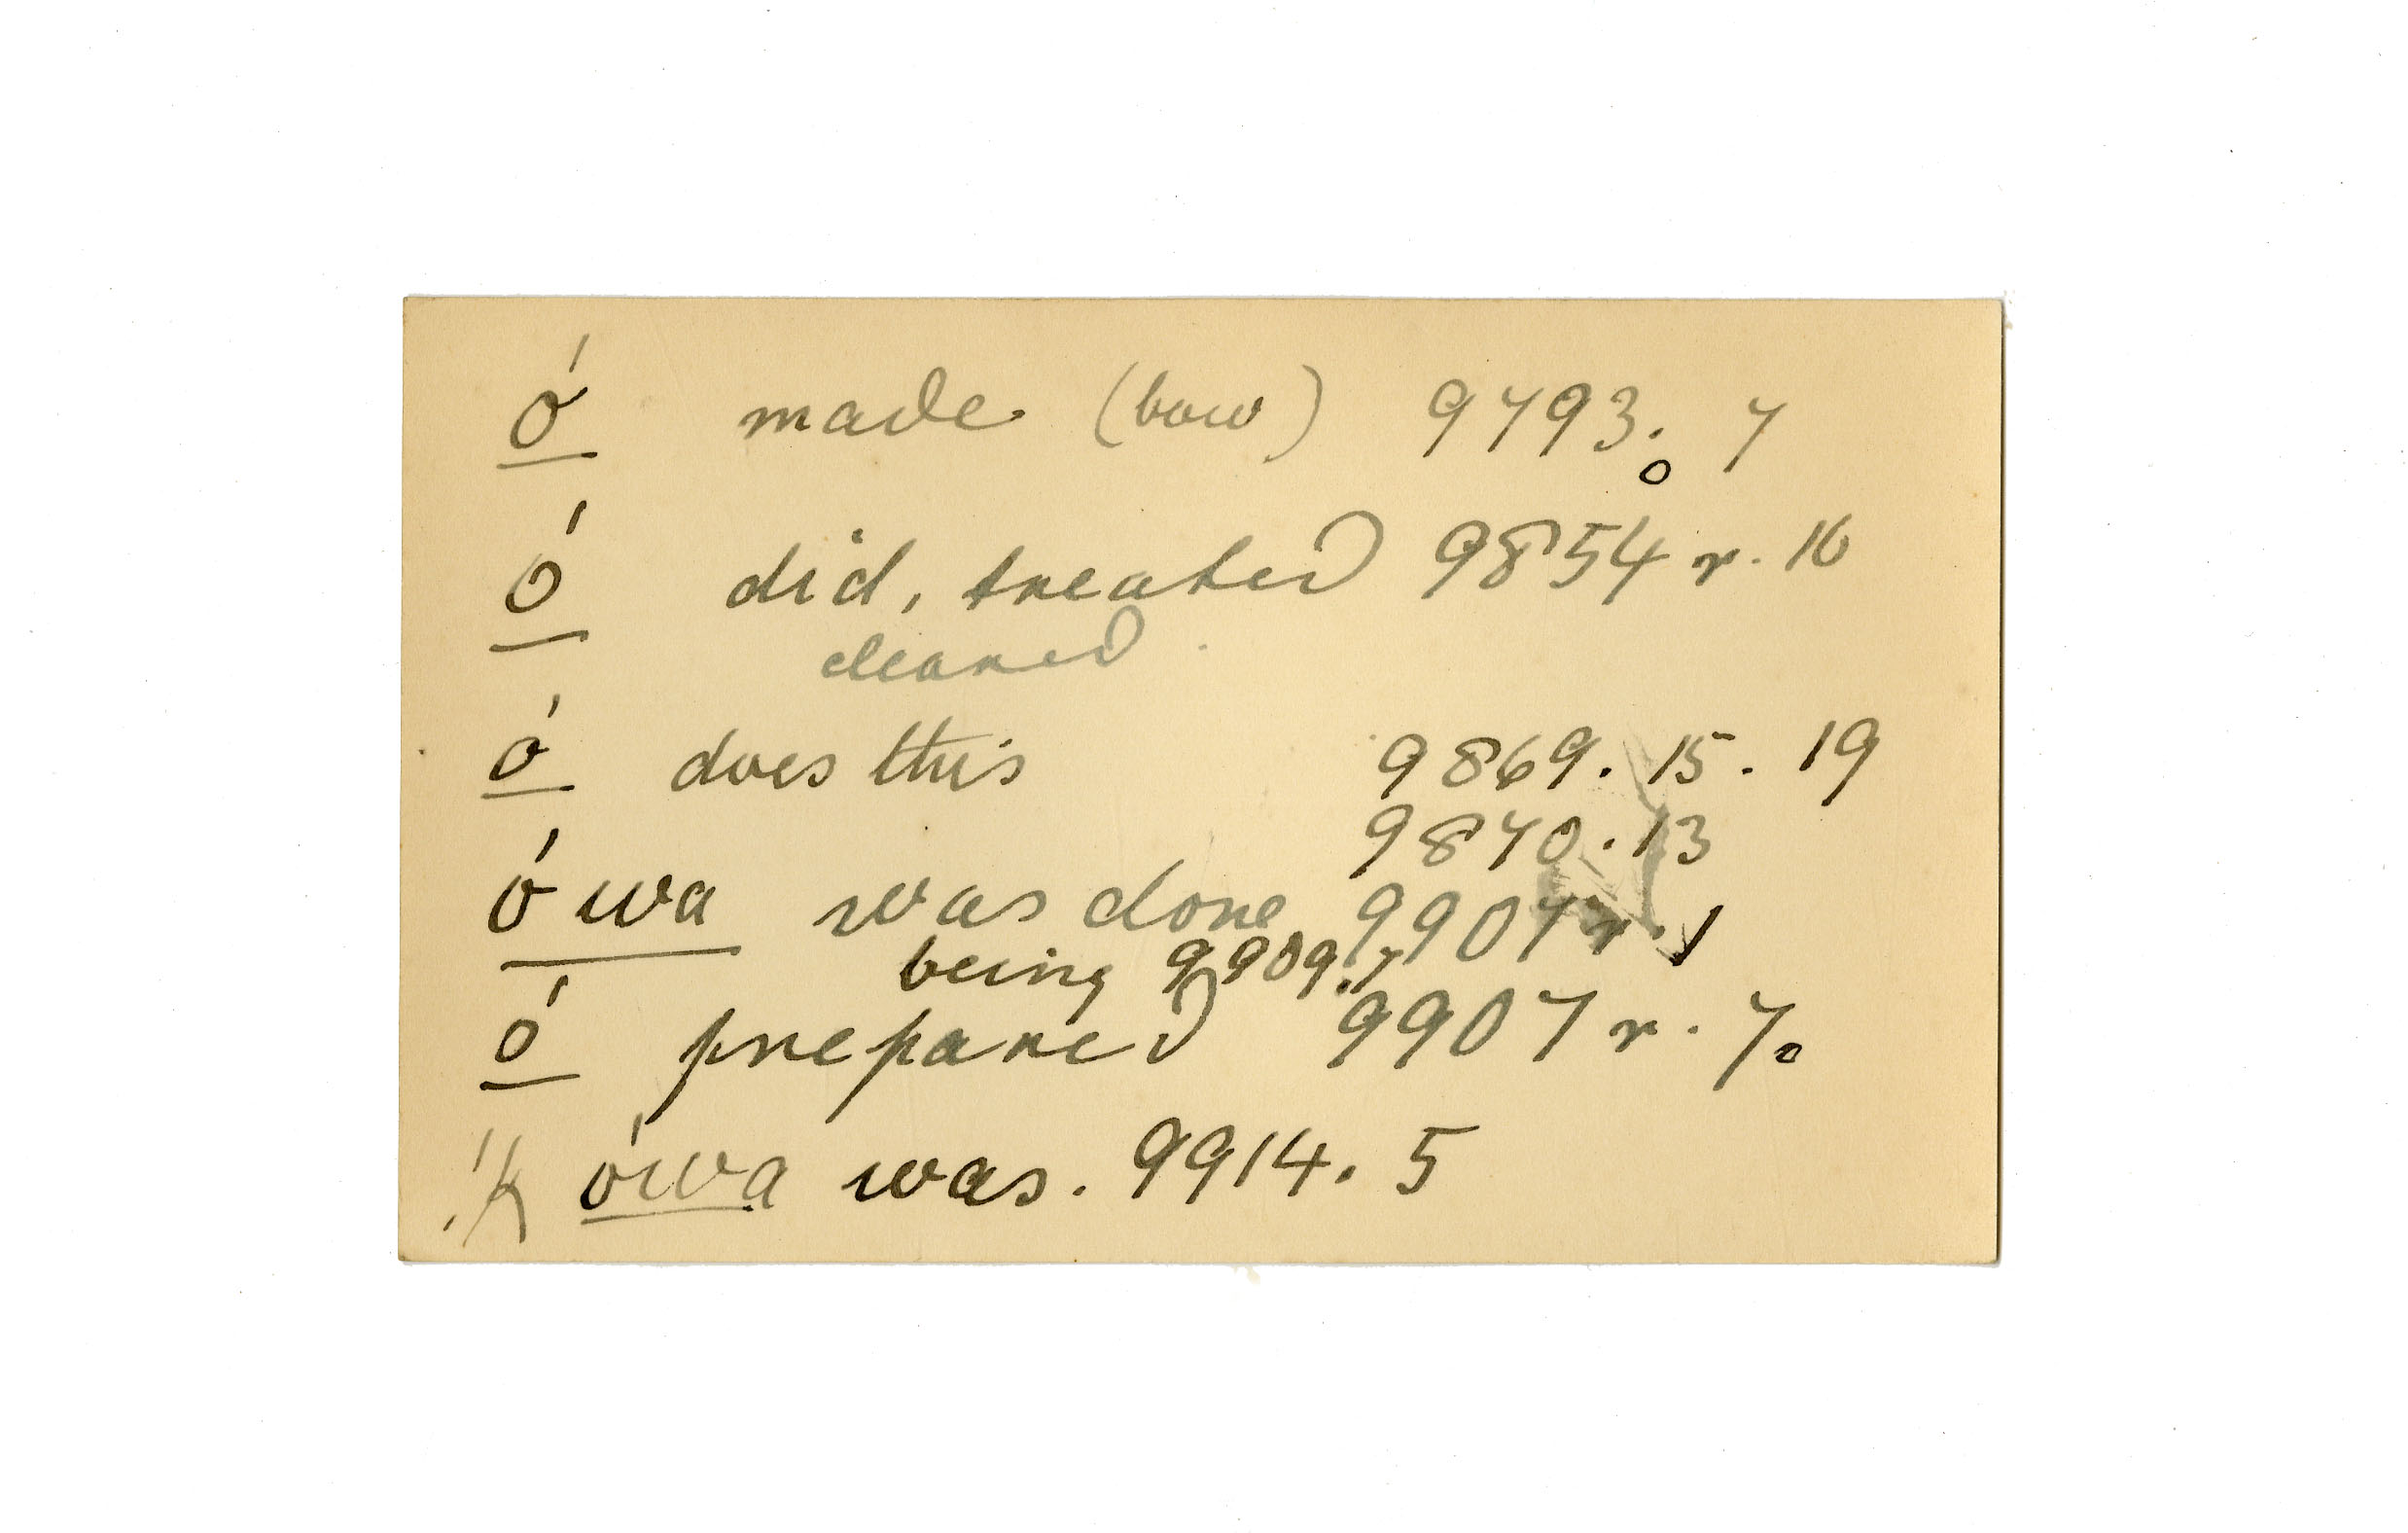 ó made (bow) 9793. 7
ó did, treated 9854 r. 16
cleaned
ó does this 9869. 15. 19
9870. 13
ówa was done 9907 r. 1
being 9909.7
ó prepared 9907 r. 7.
ówa was. 9914. 5